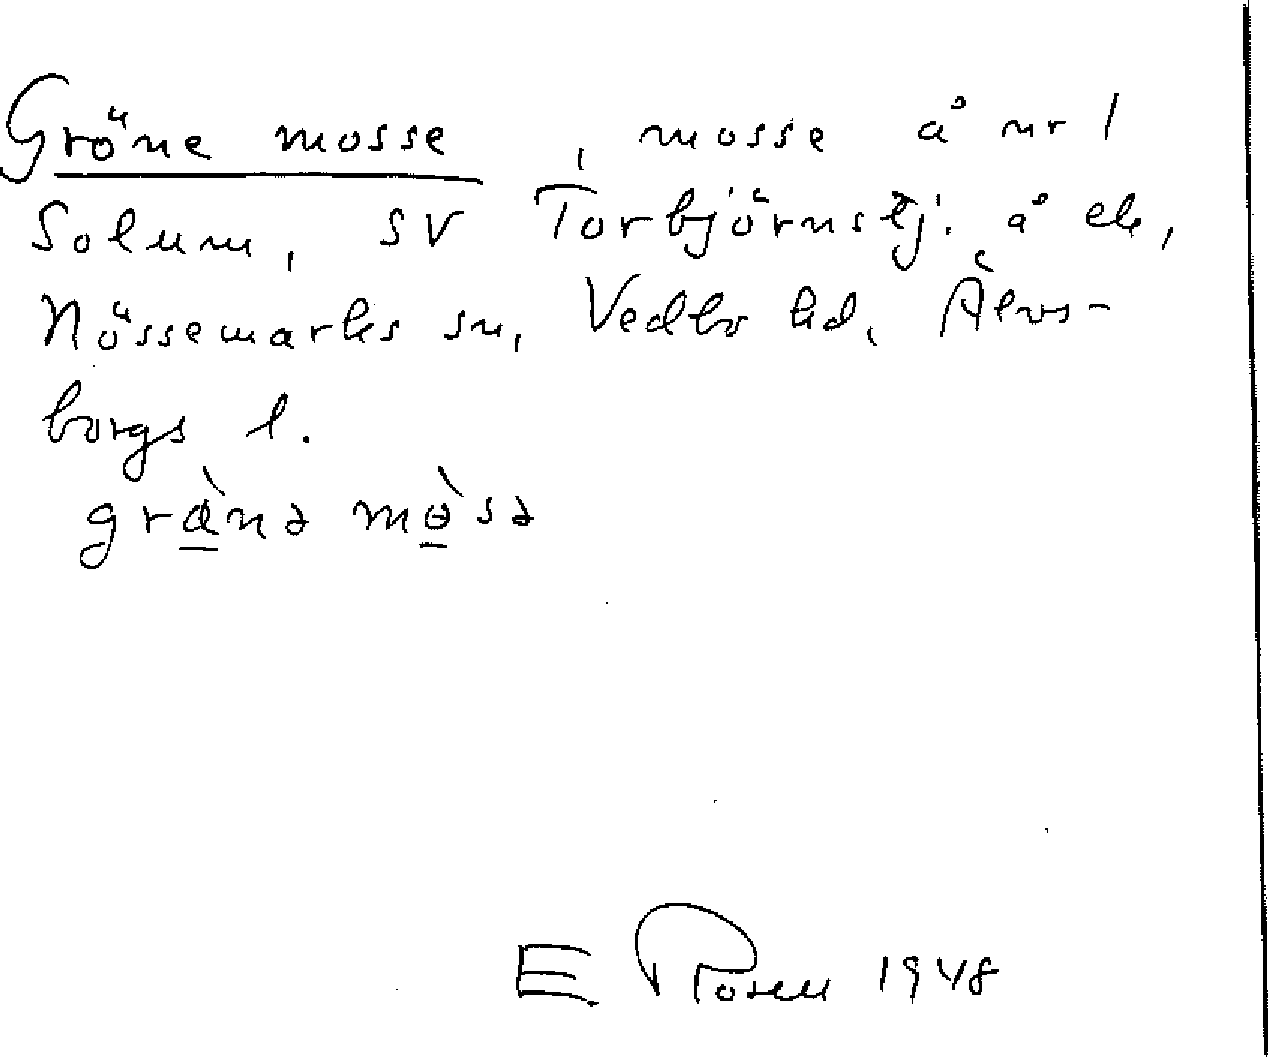 Gröne mosse, mosse å nr 1
Solum, SV Torbjörnstj. å ek,
Nössemarks sn, Vedbo hd, Älvs-
borgs l.
grànə mɵ̀sə
E Rosen 1948